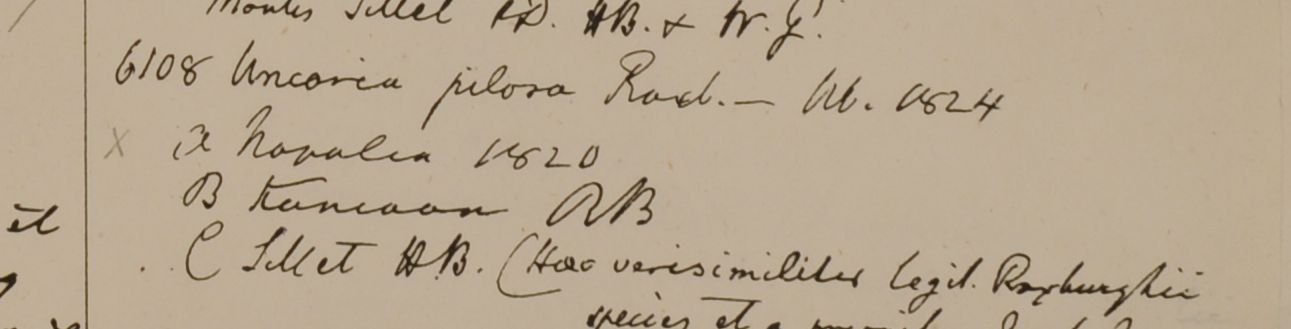 Montes Sillet FD. HB. & W.G!
6108 Uncaria pilosa Roxb. — Ub. 1824
x a Napalia 1820
B Kamaon RB
C Sillet HB. (Haec verisimiliter legit. Roxburghii
et
species et a